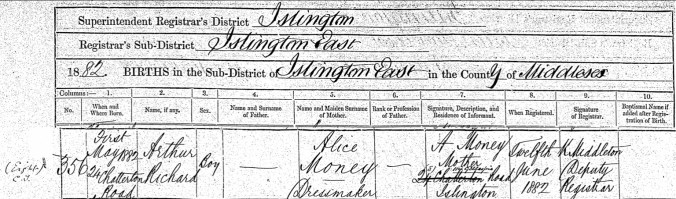 Superintendent Registrar's District Islington
Registrar's Sub-District Islington East
1882. BIRTHS in the Sub-District of Islington East in the County of Middlesex
Columns:— 1. 2. 3. 4. 5. 6. 7. 8. 9. 10.
No. When and Where Born. Name, if any. Sex. Name and Surname of Father. Name and Maiden Surname of Mother. Rank or Profession of Father. Signature, Description, and Residence of Informant. When Registered. Signature of Registrar. Baptismal Name if added after Registration of Birth.
356 First May 1882 24 Chatterton Road Arthur Richard Boy — Alice Money Dressmaker — A Money Mother 24 Chatterton Road Islington Twelfth June 1882 K Middleton Deputy Registrar
(Eight) C.S.